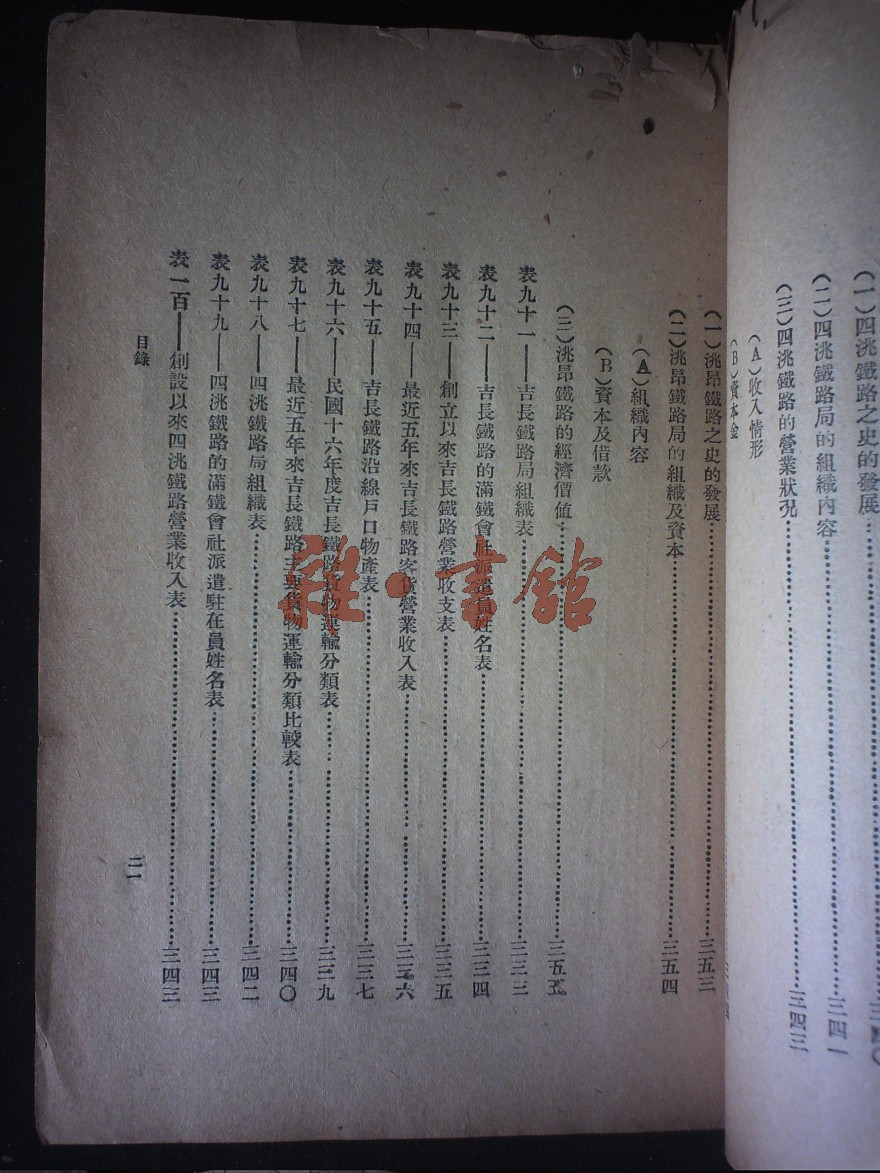 (一)四洮鐵路之史的發展
(二)四洮鐵路局的組織內容……三四一
(三)四洮鐵路的營業狀況……三四三
(A)收入情形
(B)資本金
(一)洮昂鐵路之史的發展……三五三
(二)洮昂鐵路局的組織及資本……三五四
(A)組織內容
(B)資本及借款
(三)洮昂鐵路的經濟價值……三五五
表九十一——吉長鐵路局組織表……三三三
表九十二——吉長鐵路的滿鐵會社派遣員姓名表……三三四
表九十三——創立以來吉長鐵路營業收支表……三三五
表九十四——最近五年來吉長鐵路客貨營業收入表……三三六
表九十五——吉長鐵路沿線戶口物產表……三三七
表九十六——民國十六年度吉長鐵路貨物運輸分類表……三三九
表九十七——最近五年來吉長鐵路主要貨物運輸分類比較表……三四〇
表九十八——四洮鐵路局組織表……三四二
表九十九——四洮鐵路的滿鐵會社派遣駐在員姓名表……三四三
表一百——創設以來四洮鐵路營業收入表……三四三
目錄
二一
雜·書館